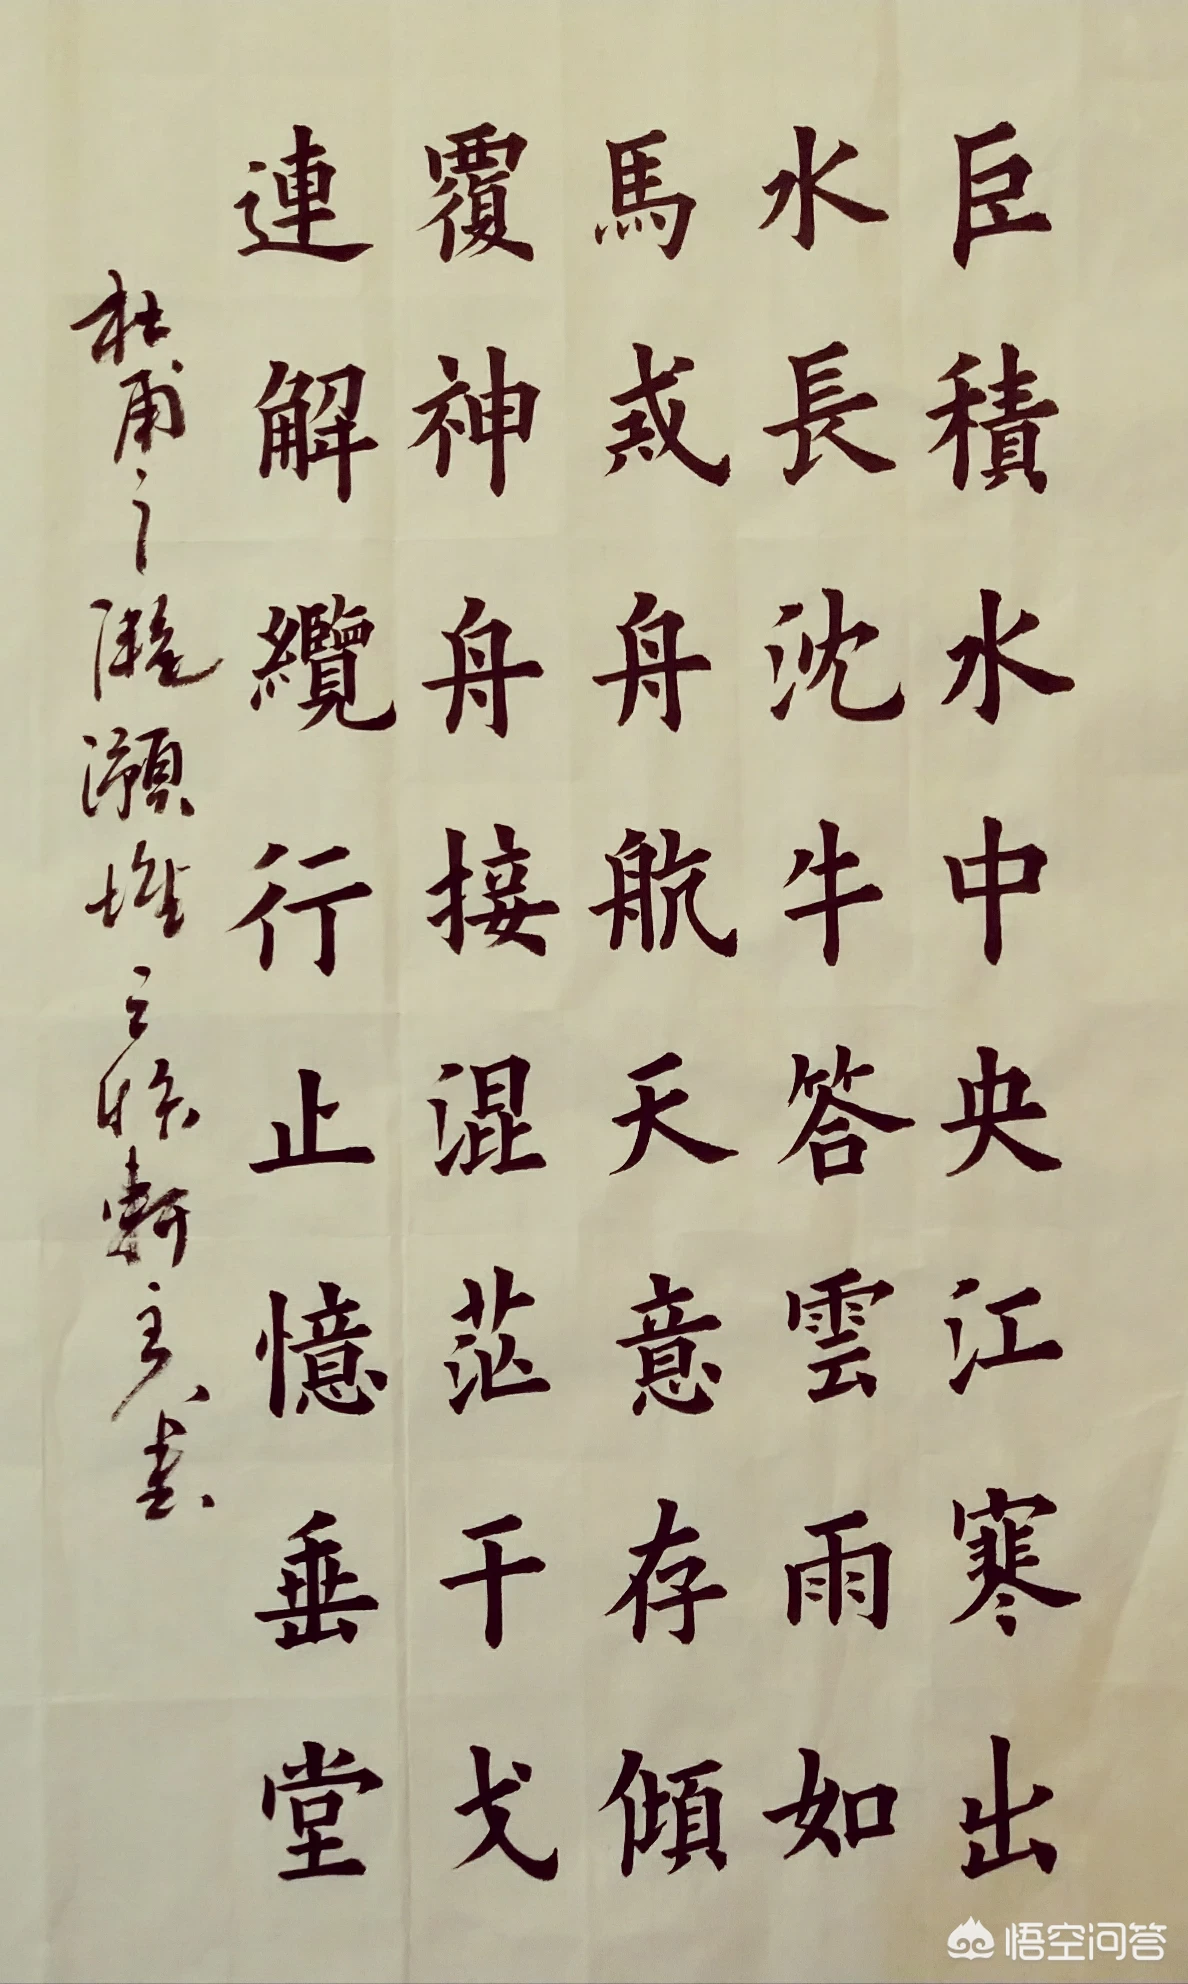 巨積水中央江寒出
水長沈牛答雲雨如
馬戒舟航天意存傾
覆神舟接混茫干戈
連解纜行止憶垂堂
杜甫之灩澦堆 軒主人書
悟空问答